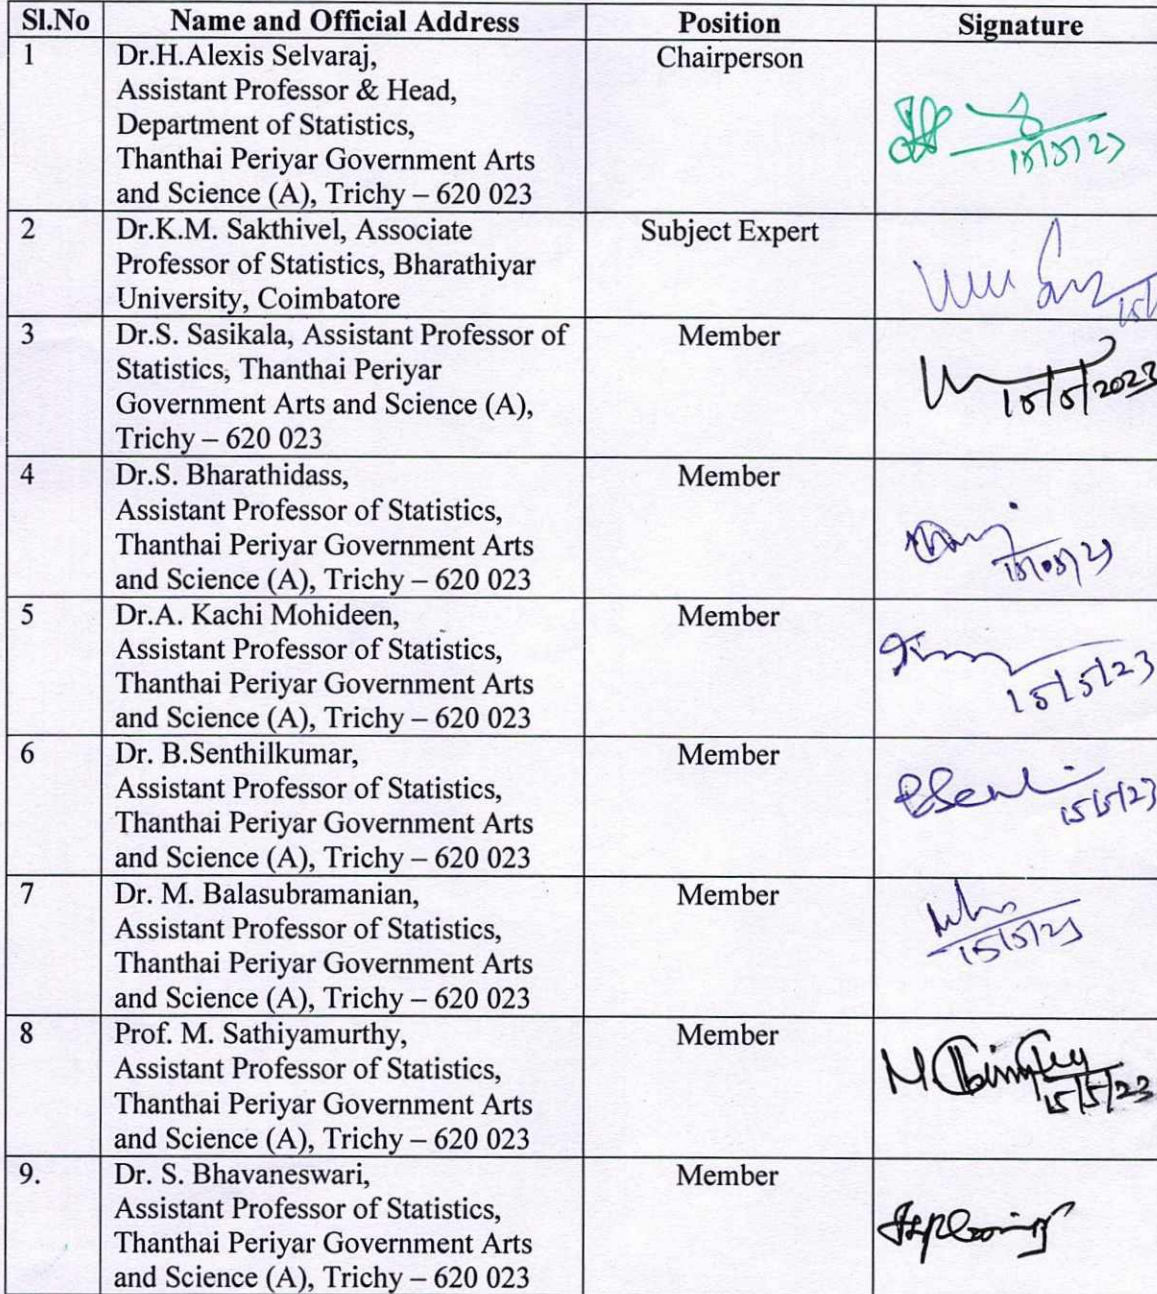 Sl.No Name and Official Address Position Signature
1 Dr.H.Alexis Selvaraj, Chairperson
Assistant Professor & Head,
Department of Statistics,
Thanthai Periyar Government Arts
and Science (A), Trichy – 620 023
15/5/23
2 Dr.K.M. Sakthivel, Associate Subject Expert
Professor of Statistics, Bharathiyar
University, Coimbatore
3 Dr.S. Sasikala, Assistant Professor of Member
Statistics, Thanthai Periyar
Government Arts and Science (A),
Trichy – 620 023
15/5/2023
4 Dr.S. Bharathidass, Member
Assistant Professor of Statistics,
Thanthai Periyar Government Arts
and Science (A), Trichy – 620 023
15/05/23
5 Dr.A. Kachi Mohideen, Member
Assistant Professor of Statistics,
Thanthai Periyar Government Arts
and Science (A), Trichy – 620 023
15/5/23
6 Dr. B.Senthilkumar, Member
Assistant Professor of Statistics,
Thanthai Periyar Government Arts
and Science (A), Trichy – 620 023
15/5/23
7 Dr. M. Balasubramanian, Member
Assistant Professor of Statistics,
Thanthai Periyar Government Arts
and Science (A), Trichy – 620 023
15/5/23
8 Prof. M. Sathiyamurthy, Member
Assistant Professor of Statistics,
Thanthai Periyar Government Arts
and Science (A), Trichy – 620 023
15/5/23
9. Dr. S. Bhavaneswari, Member
Assistant Professor of Statistics,
Thanthai Periyar Government Arts
and Science (A), Trichy – 620 023